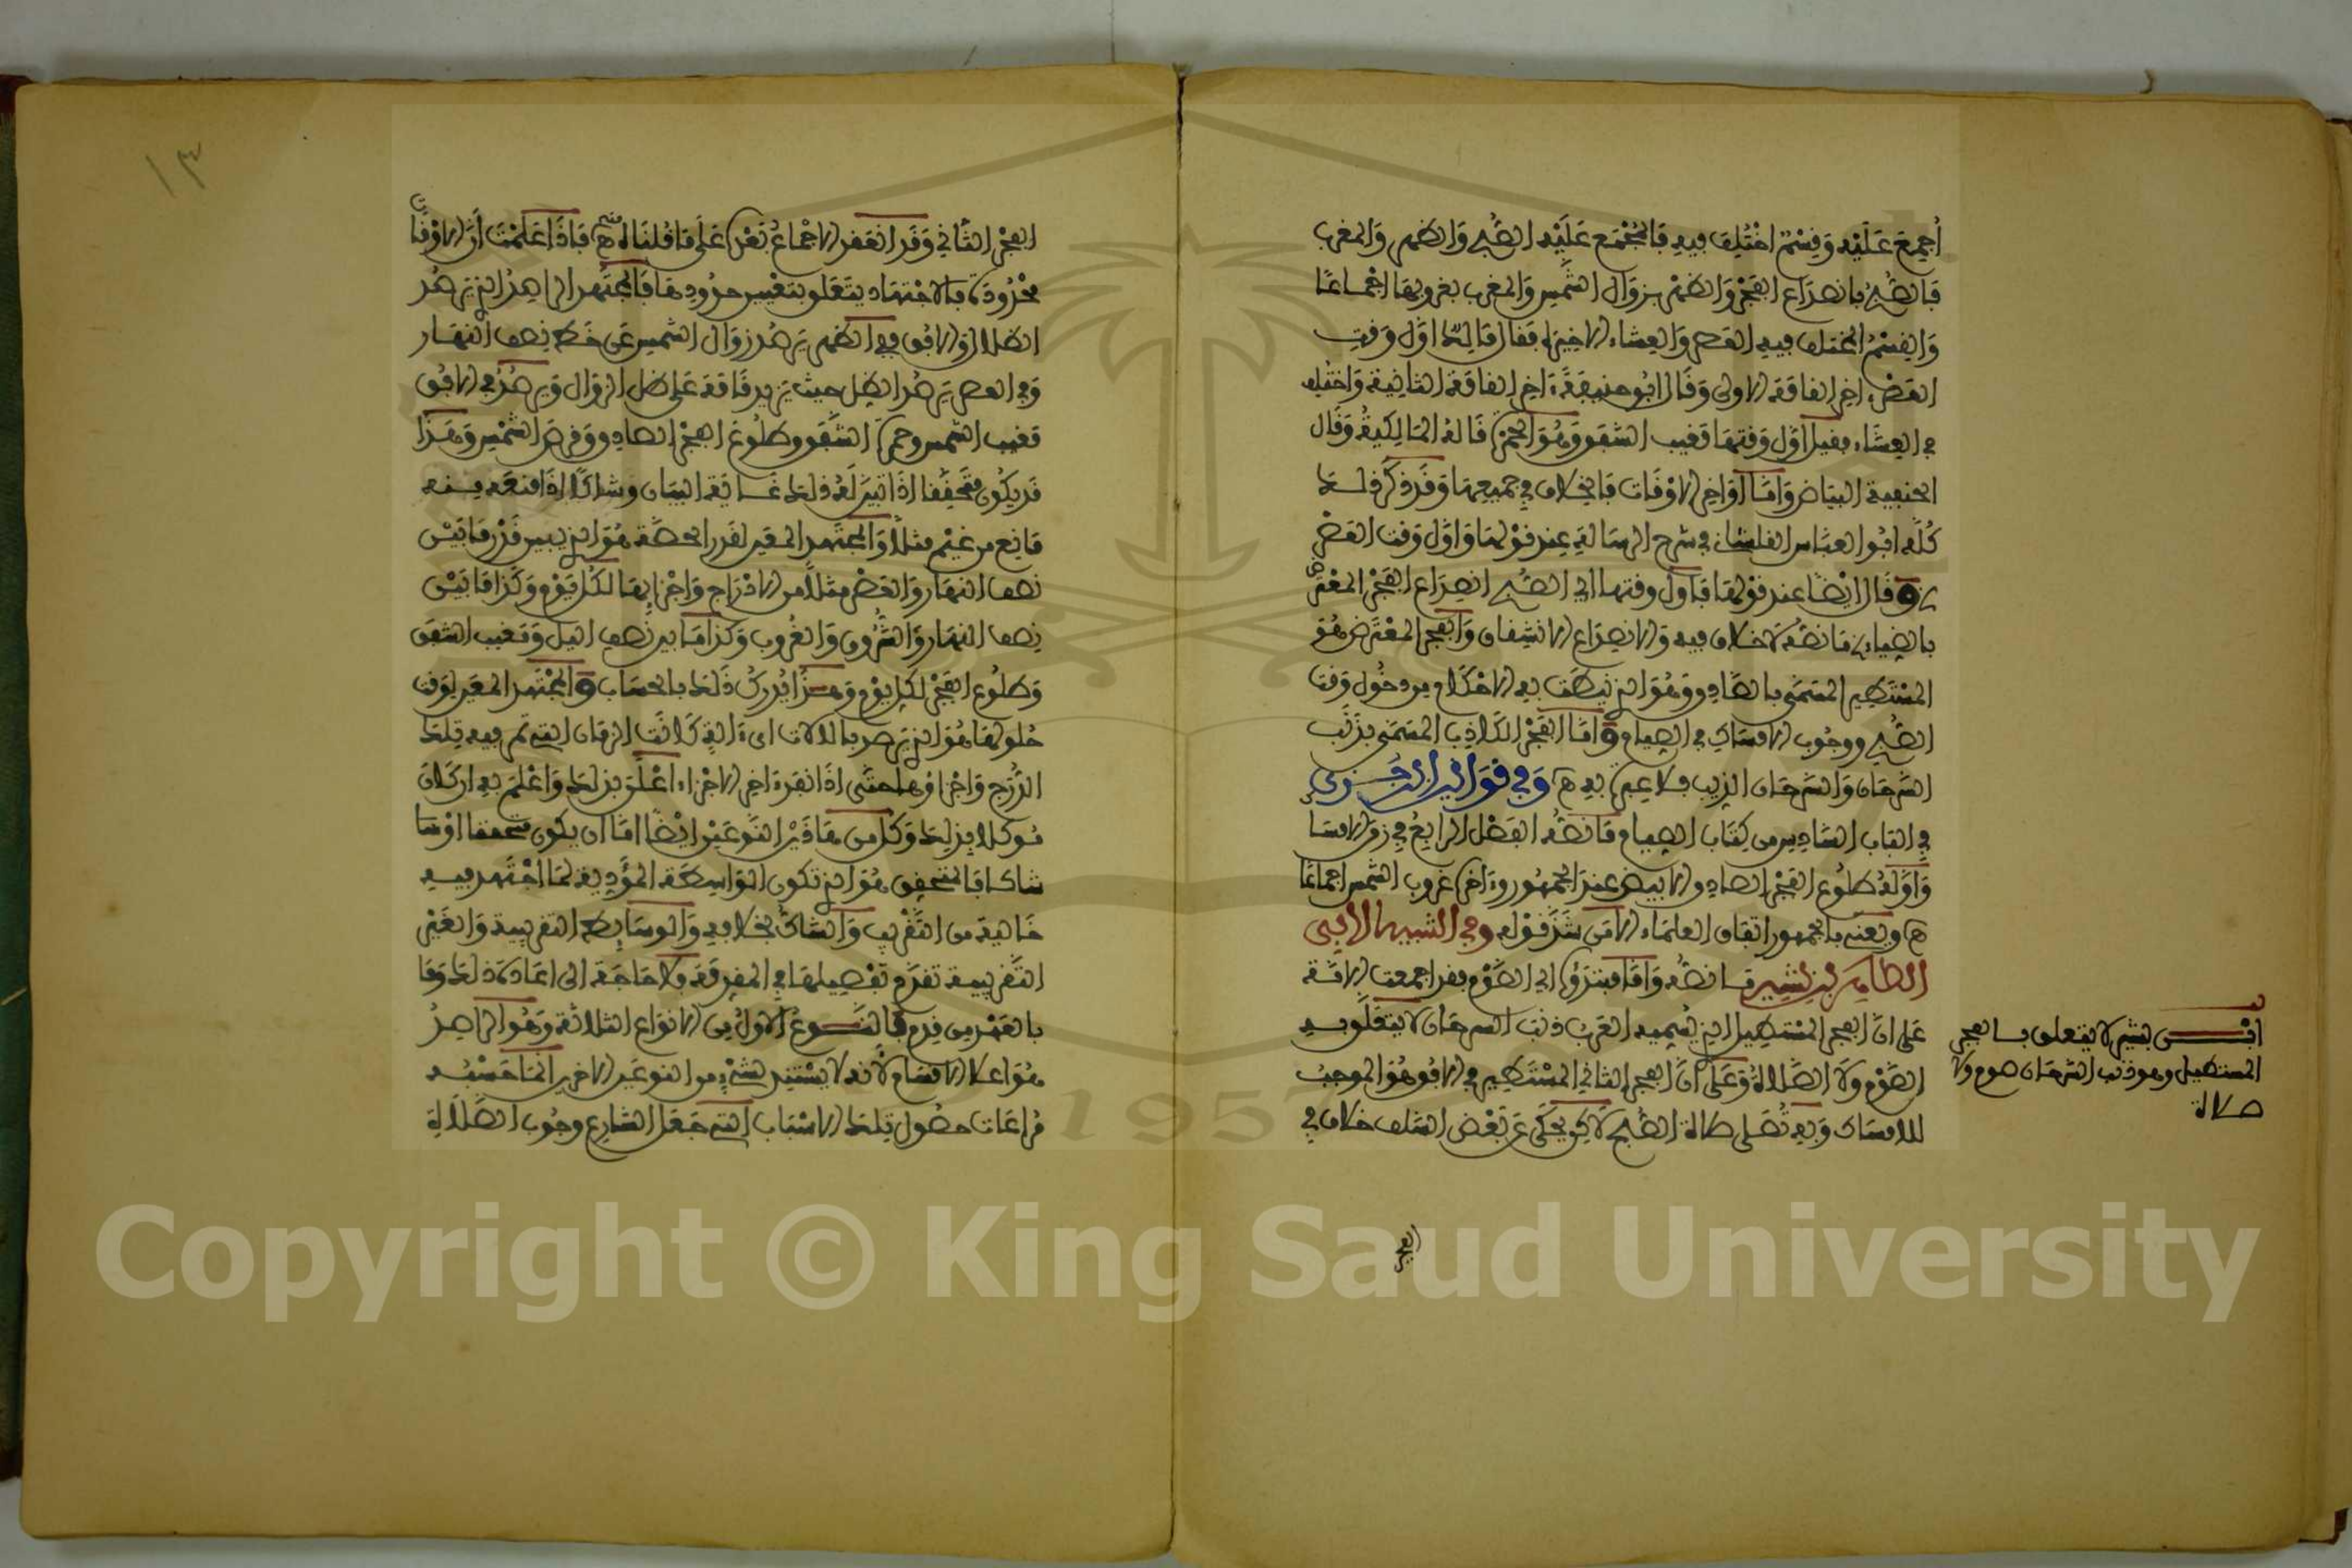 أُجمِعَ عَلَيْهِ وَفِسْمٌ اخْتُلِفَ فِيهِ فَالمُجْمَع عَلَيْهِ الصُّبْح وَالظهر وَالمغرب
فَالصُّبْح بانصداع الفَجْر وَالظهر بزوال الشمس وَالمغرب بغروبها اجماعًا
وَالفسْمُ المختلف فيه العصر وَالعشاء الاخيرة فقال مالك اوّل وقت
العصر اخر القامة الاولى وَقال ابُو حنيفة ءاخر القامة الثانية وَاختلف
في العشاء فقيل اوّل وقتها مغيب الشفق وهُوَ الحمرة قاله المالكيةُ وَقال
الحنفية البياض وَامّا اوَاخر الاوْقات فالخلاف في جميعها وَقد ذكر ذلك
كُلَّه ابُو العبّاس القلشاني في شرح الرسالة عند قوْلها وَاوَّل وقت العصْر
وقال ايْضًا عند قوْلها فاول وقتها اي الصبح انصداع الفجْر المعْترض
بالضياء ما نصُّه لا خلاف فيه وَالانصداع الانشقاق وَالفجر المعْترض هُوَ
المسْتطير المسَمّى بالصَّادق وَهُوَ الذي تتعلق به الاحْكام من دخُول وَقت
الصُّبْح ووجُوب الامساك في الصيام وَامّا الفجْر الكاذب المسمّى بذنَب
السَّرحَان وَالسّرحَان الذيب فلا عبرة به ه وَفي قوانين ابن جُزي
في الباب السّادس من كتَاب الصيام مَا نصُّه الفصْل الرابعُ في زمن الامسَا
وَاوَّلهُ طلُوع الفجْر الصادق الابيض عند الجمْهُور وءاخره غروب الشمس اجماعًا
ه ويعني بالجمهور اتفاق العلمَاء الا من شذ قوْله وفي
الطاهر ابن بشير ما نصُّه وَامّا مبتدؤُه اي الصَّوْم فقد اجمعت الامّة
على انَّ الفجر المسْتطيل الذي تُسميه العَرَب ذنَب السرحَان لا يتعلق به
الصَّوْم ولا الصَّلاة وَعلى انَّ الفجر الثاني المسْتطير في الافق وهُوَ الموجبُ
للامسَاك وَبه تُصَلى صلاة الصُّبح لاكن يحكَى عن بَعْض السّلف خلاف في
ابْن بشير لا يتعلق بالفجر
المستطيل وهو ذنب السّرحَان صوم ولا
صلاة
الفجر
١٣
الفجْر الثّاني وَقد انعقد الاجْماعُ بَعْد عَلى مَا قُلنَاه ه فَاذَا عَلمْتَ أنَّ الاوْقات
محْدُودَة فالاجْتهَاد يتعَلق بتعْيين حدُودهَا فالمجْتَهد الراصدُ الذي يرصُد
الظلال وَالافق ففي الظهر يرصُد زوَال الشمس عن خط نصف النهَار
وَفي العصر يَرصُد الظل حيث يزيد قامَة عَلى ظل الزوَال وَيرصُدُ في الافُق
مَغيب الشمس وحمرة الشفق وطلُوع الفجْر الصادق وقرص الشمْس وَهَذا
قد يكُون متَحقّقا اذَا تبيّن لَهُ ذلك غَاية البَيان وَشاكًّا اذَا منعَه منه
مَانع من غيْم مثلا وَالمجْتَهد المعَين لقدر الحصّة هُوَ الذي يبين قدْر مَا بَيْن
نصف النهَار وَالعصْر مثلاً من الادْرَاج وَاجْزايهَا لكُل يَوْم وَكذا مَا بَيْن
نصف النهَار وَالشُّرُوق وَالغُرُوب وَكذَا مَا بين نصف الليل وَمغيب الشفق
وَطلُوع الفجْر لكل يَوْم وَهذا يُدرَكُ ذَلك بالحسَاب وَالمجْتَهد المعَين لوَقت
حُلولهَا هُوَ الذي يَرصد بالالات ايّ ءالة كَانَت الزمَان التي تمر فيه تلك
الدُّرَج وَاجْزاؤهَا حتَّى اذَا نفد ءاخر الاجْزاء اعْلَن بذلك وَاعْلم به ان كَان
مُوكلا بذلك وَكل من هَاذيْن النَّوعَيْن ايْضًا امّا ان يكون متحققا اوْ شا
شاكا فالمتحقق هُوَ الذي تكون الوَاسطة المؤَدّية لمَا اجْتَهد فيه
خَاليَة من التّقْريب وَالشاكُّ بخلافه وَالوسَايط التقريبية وَالغَيْر
التَّقريبية تقدَّم تفْصيلهَا في المقدمة فلا حَاجَة الى اعَادة ذلك وَمَا
بالعَهْد من قدم فالنَّوعُ الاولُ من الانوَاع الثلاثة وَهُوَ الراصدُ
هُوَ اعلا الاقسَام لأنه لا يسْتند لشيْء من النوعَين الاخرين انما حَسْبُه
مُراعَات حصُول تلك الاسْبَاب التي جَعَل الشارع وجُوب الصَّلاة